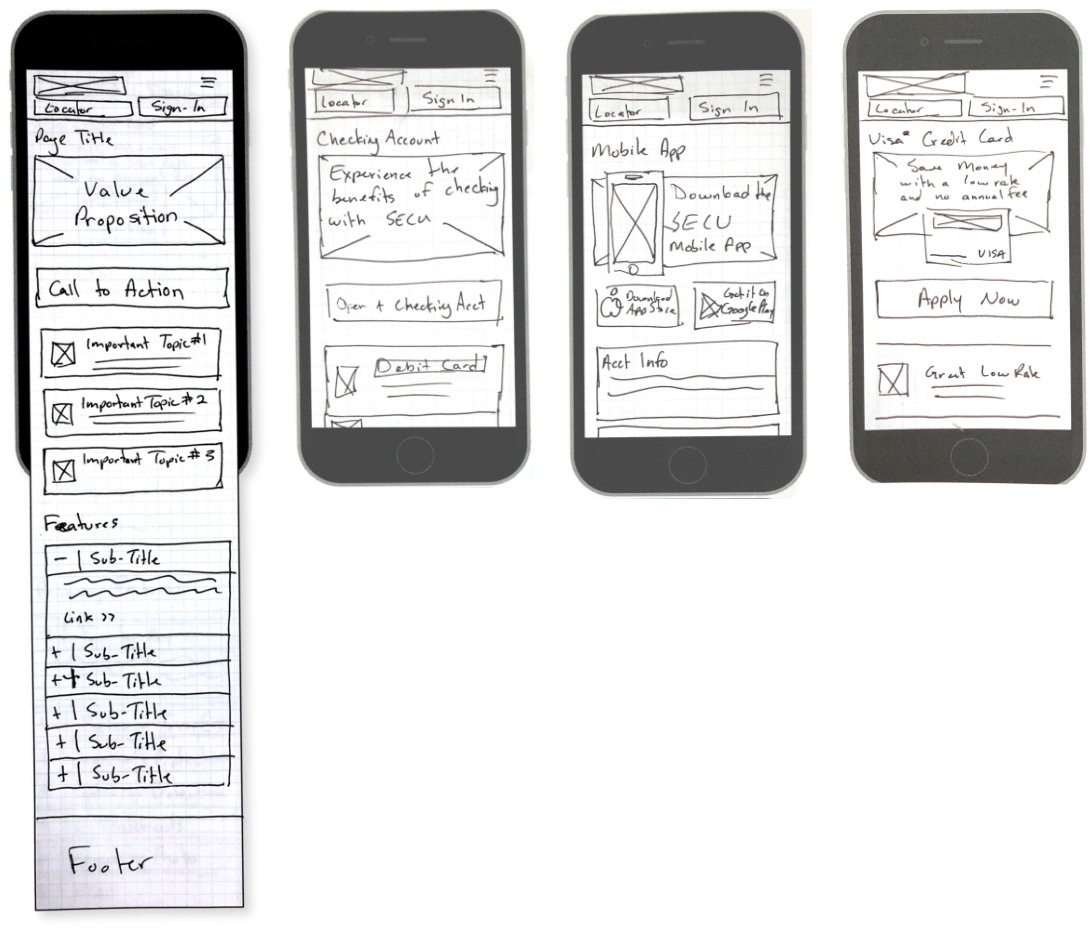 Locator
Sign-In
Page Title
Value
Proposition
Call to Action
Important Topic #1
Important Topic #2
Important Topic #3
Features
- | Sub-Title
Link >>
+ | Sub-Title
+ + Sub-Title
+ | Sub-Title
+ | Sub-Title
+ | Sub-Title
Footer
Locator
Sign In
Checking Account
Experience the
benefits of checking
with SECU
Open + Checking Acct
Debit Card
Locator
Sign In
Mobile App
Download the
SECU
Mobile App
Download
App Store
Get it on
Google Play
Acct Info
Locator
Sign-In
Visa® Credit Card
Save Money
with a low rate
and no annual fee
VISA
Apply Now
Great Low Rate